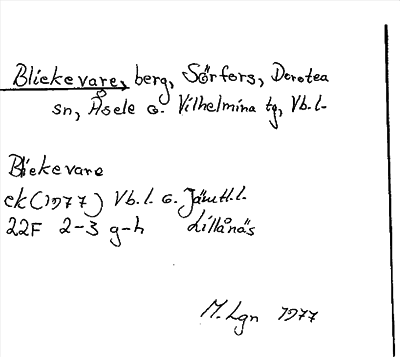 Bliekevare, berg, Sörfors, Dorotea
sn, Åsele o. Vilhelmina tg, Vb.l.
Bliekevare
ek (1977) Vb.l. o. Jämtl.l.
22F 2-3 g-h Lillånäs
M. Lgn 1977